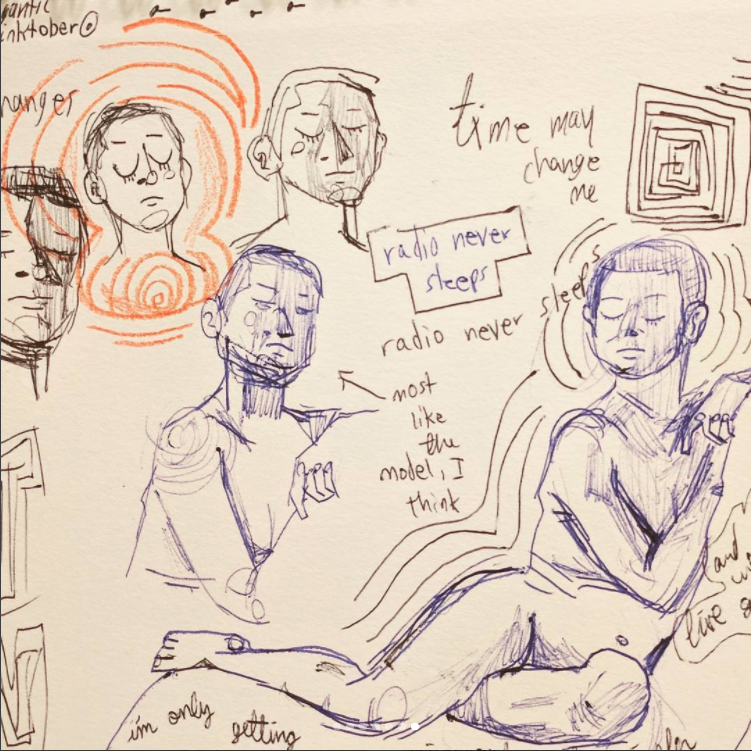 inktober
time may
change
me
radio never
sleeps
radio never sleeps
most
like
the
model, I
think
and
live
i'm only
getting